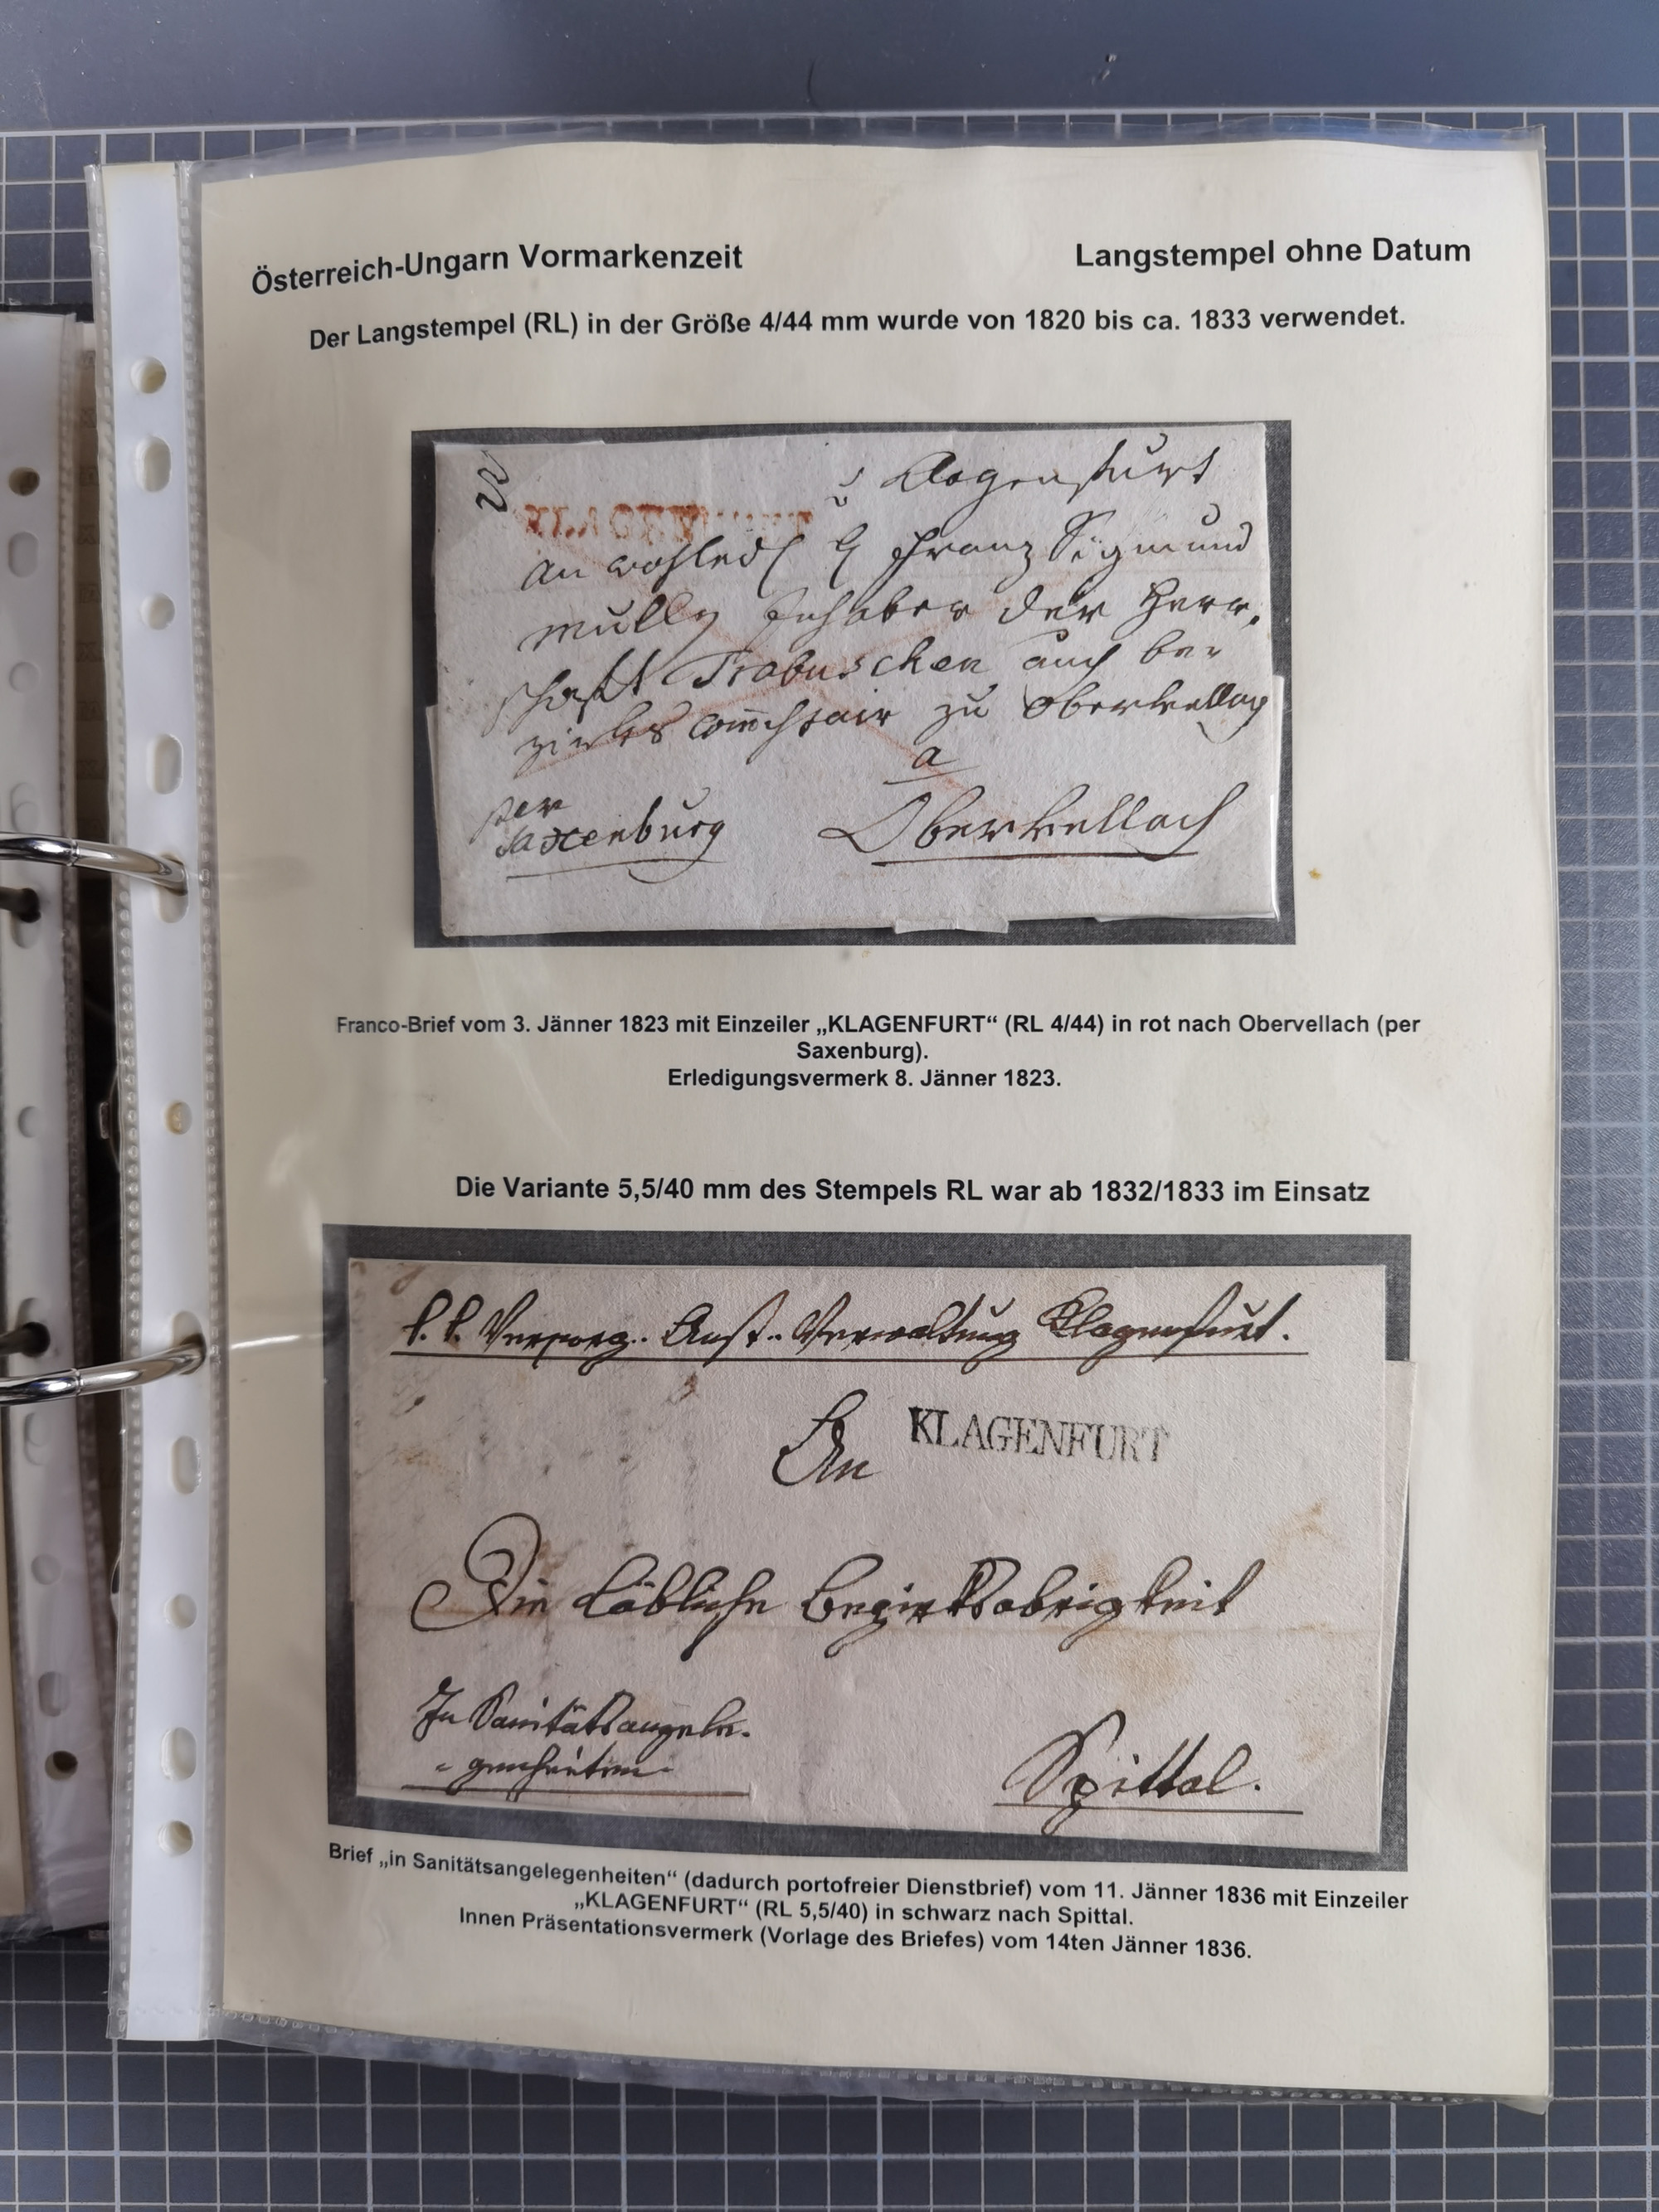 Österreich-Ungarn Vormarkenzeit
Langstempel ohne Datum
Der Langstempel (RL) in der Größe 4/44 mm wurde von 1820 bis ca. 1833 verwendet.
Klagenfurt
KLAGENFURT
An Franz Sigmund
mulln Inhaber der Herr,
schaft Trabuschen auch be-
zirks Commissair zu Obervellag
a
per
Saxenburg
Obervellach
Franco-Brief vom 3. Jänner 1823 mit Einzeiler „KLAGENFURT“ (RL 4/44) in rot nach Obervellach (per
Saxenburg).
Erledigungsvermerk 8. Jänner 1823.
Die Variante 5,5/40 mm des Stempels RL war ab 1832/1833 im Einsatz
k. k. Versorg.. Anst.. Verwaltung Klagenfurt.
An KLAGENFURT
Die Löbliche Bezirksobrigkeit
In Sanitätsangele-
-genheiten
Spittal.
Brief „in Sanitätsangelegenheiten“ (dadurch portofreier Dienstbrief) vom 11. Jänner 1836 mit Einzeiler
„KLAGENFURT“ (RL 5,5/40) in schwarz nach Spittal.
Innen Präsentationsvermerk (Vorlage des Briefes) vom 14ten Jänner 1836.